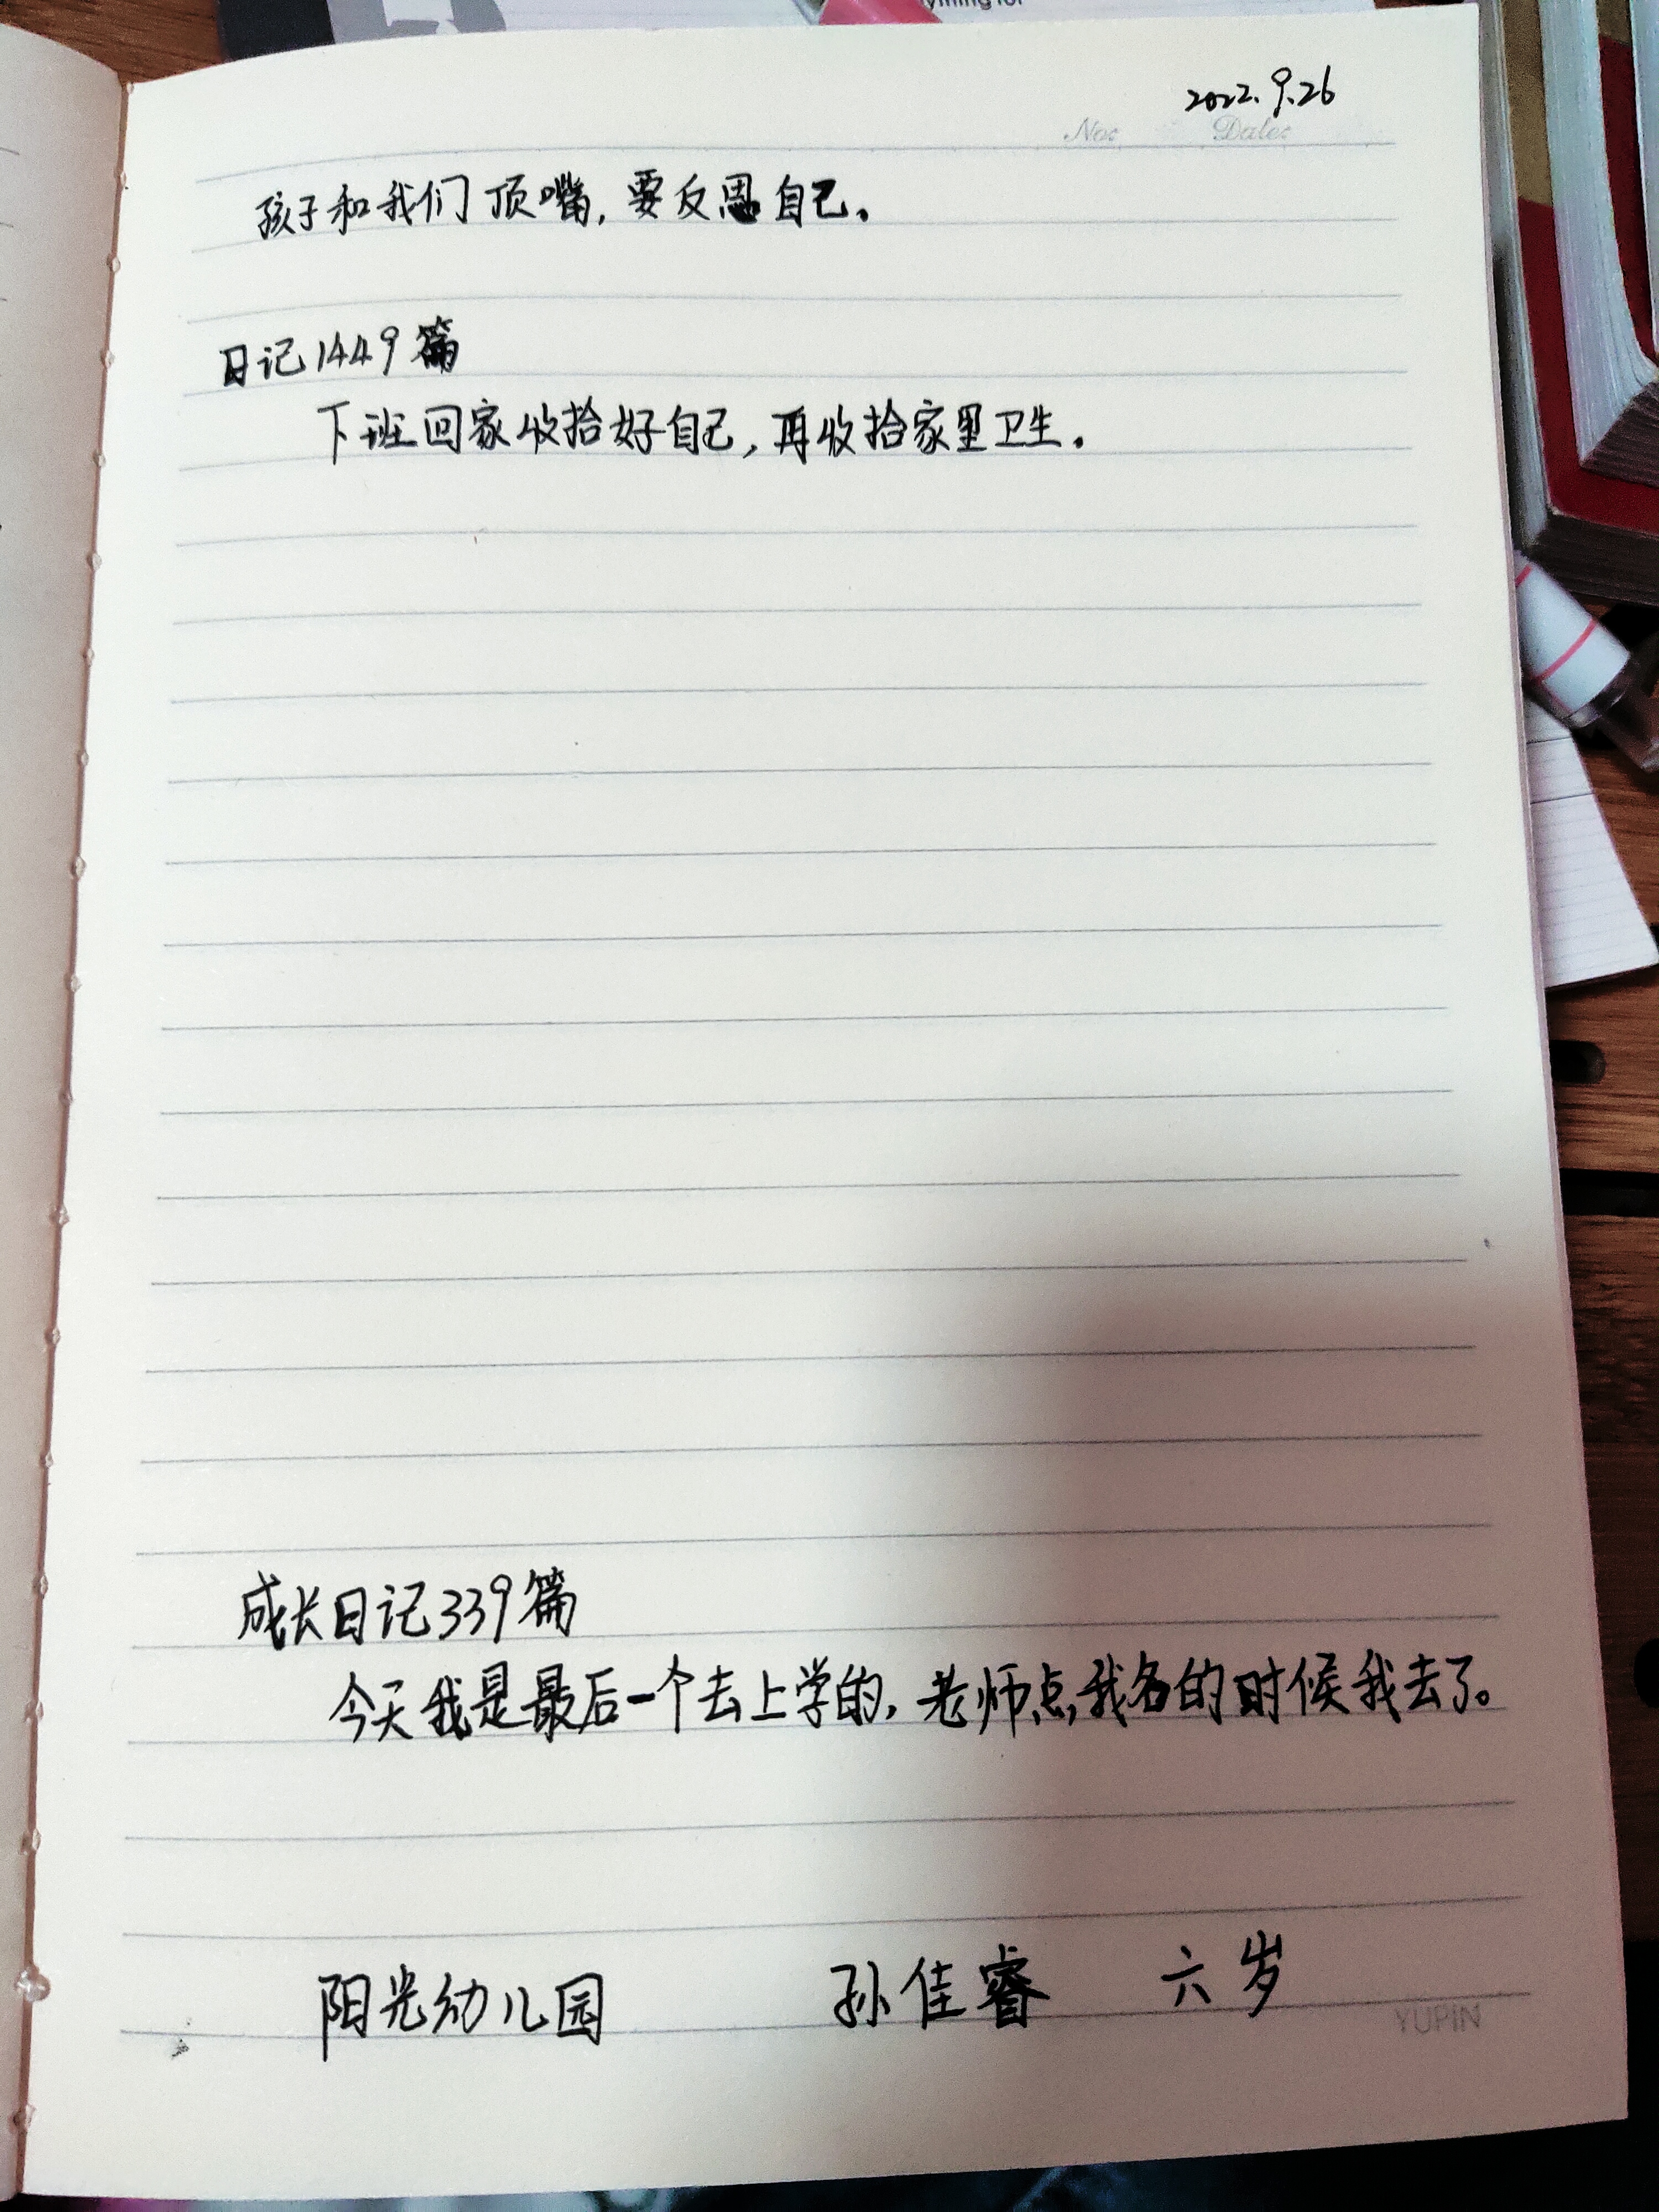 ything for
2022.9.26
No: Date:
孩子和我们顶嘴,要反思自己。
日记1449篇
下班回家收拾好自己,再收拾家里卫生。
成长日记339篇
今天我是最后一个去上学的,老师点我名的时候我去了。
阳光幼儿园 孙佳睿 六岁
YUPIN